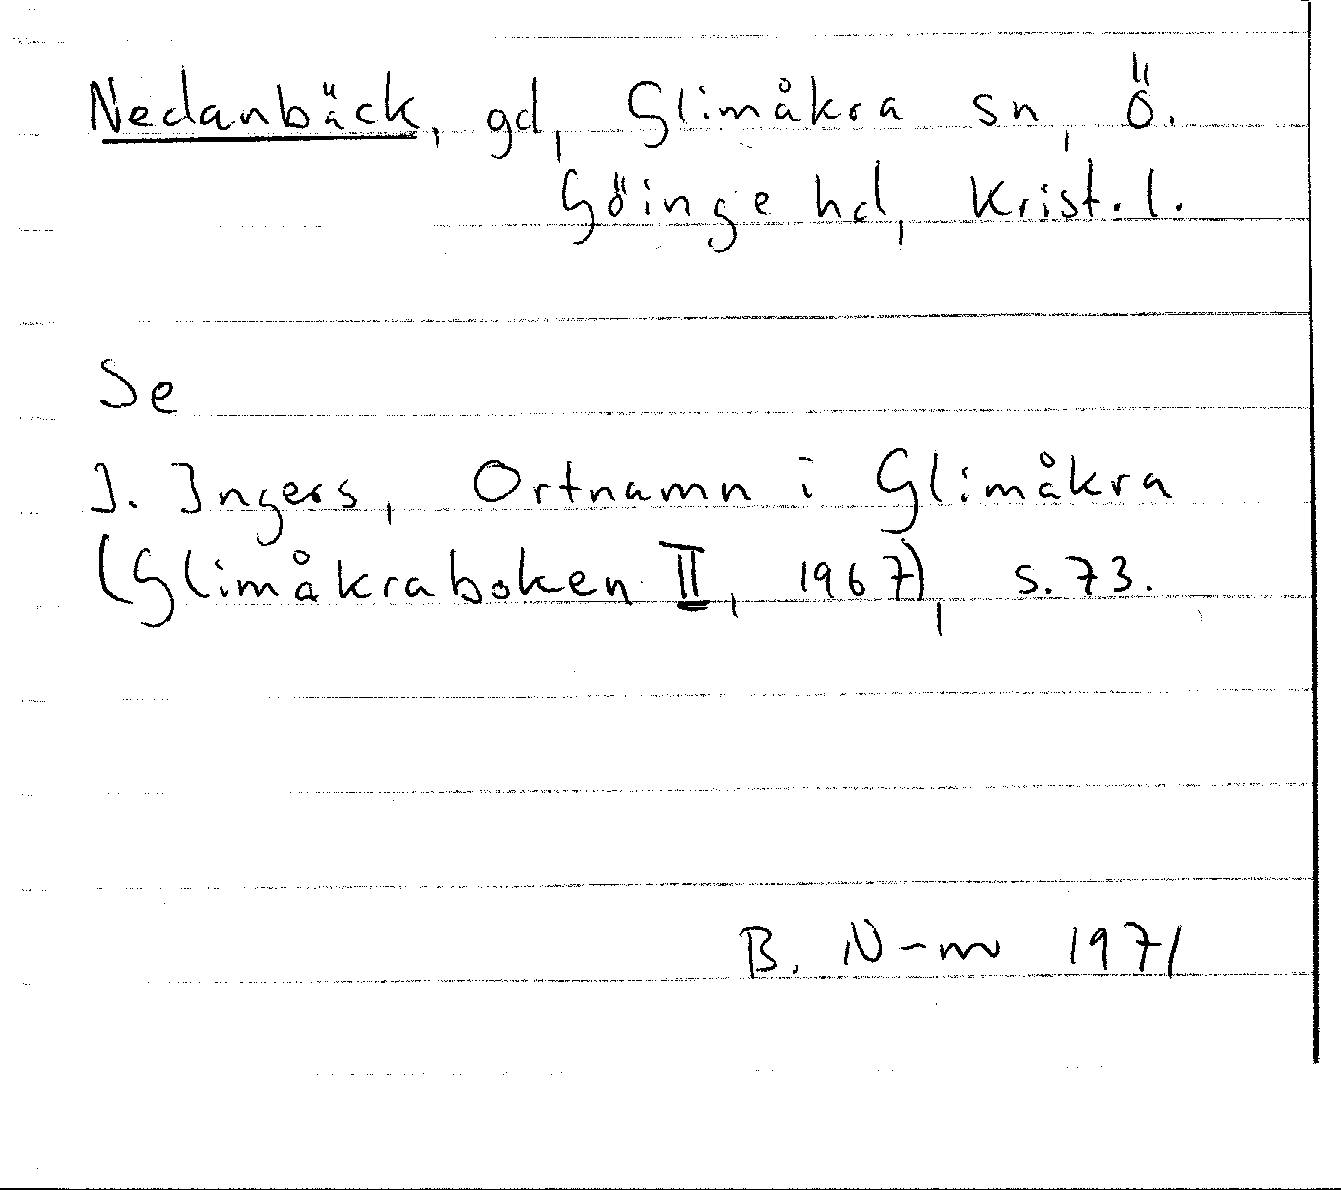 Nedanbäck, gd, Glimåkra sn, Ö.
Göinge hd, Krist. l.
Se
I. Ingers, Ortnamn i Glimåkra
(Glimåkraboken II, 1967), s. 73.
B. N-m 1971